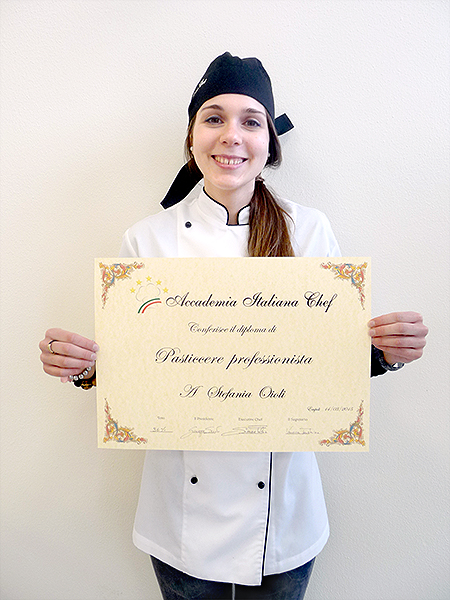 Accademia Italiana Chef
Conferisce il diploma di
Pasticcere professionista
A Stefania Oioli
Il Presidente Executive Chef Il Segretario